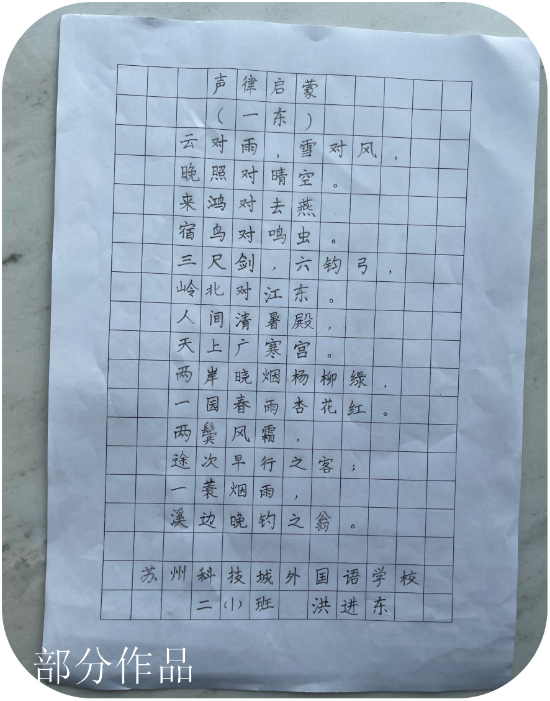 声律启蒙
(一东)
云对雨,雪对风,
晚照对晴空。
来鸿对去燕
宿鸟对鸣虫。
三尺剑,六钧弓,
岭北对江东。
人间清暑殿,
天上广寒宫。
两岸晓烟杨柳绿,
一园春雨杏花红。
两鬓风霜,
途次早行之客;
一蓑烟雨,
溪边晚钓之翁。
苏州科技城外国语学校
二(1)班 洪进东
部分作品